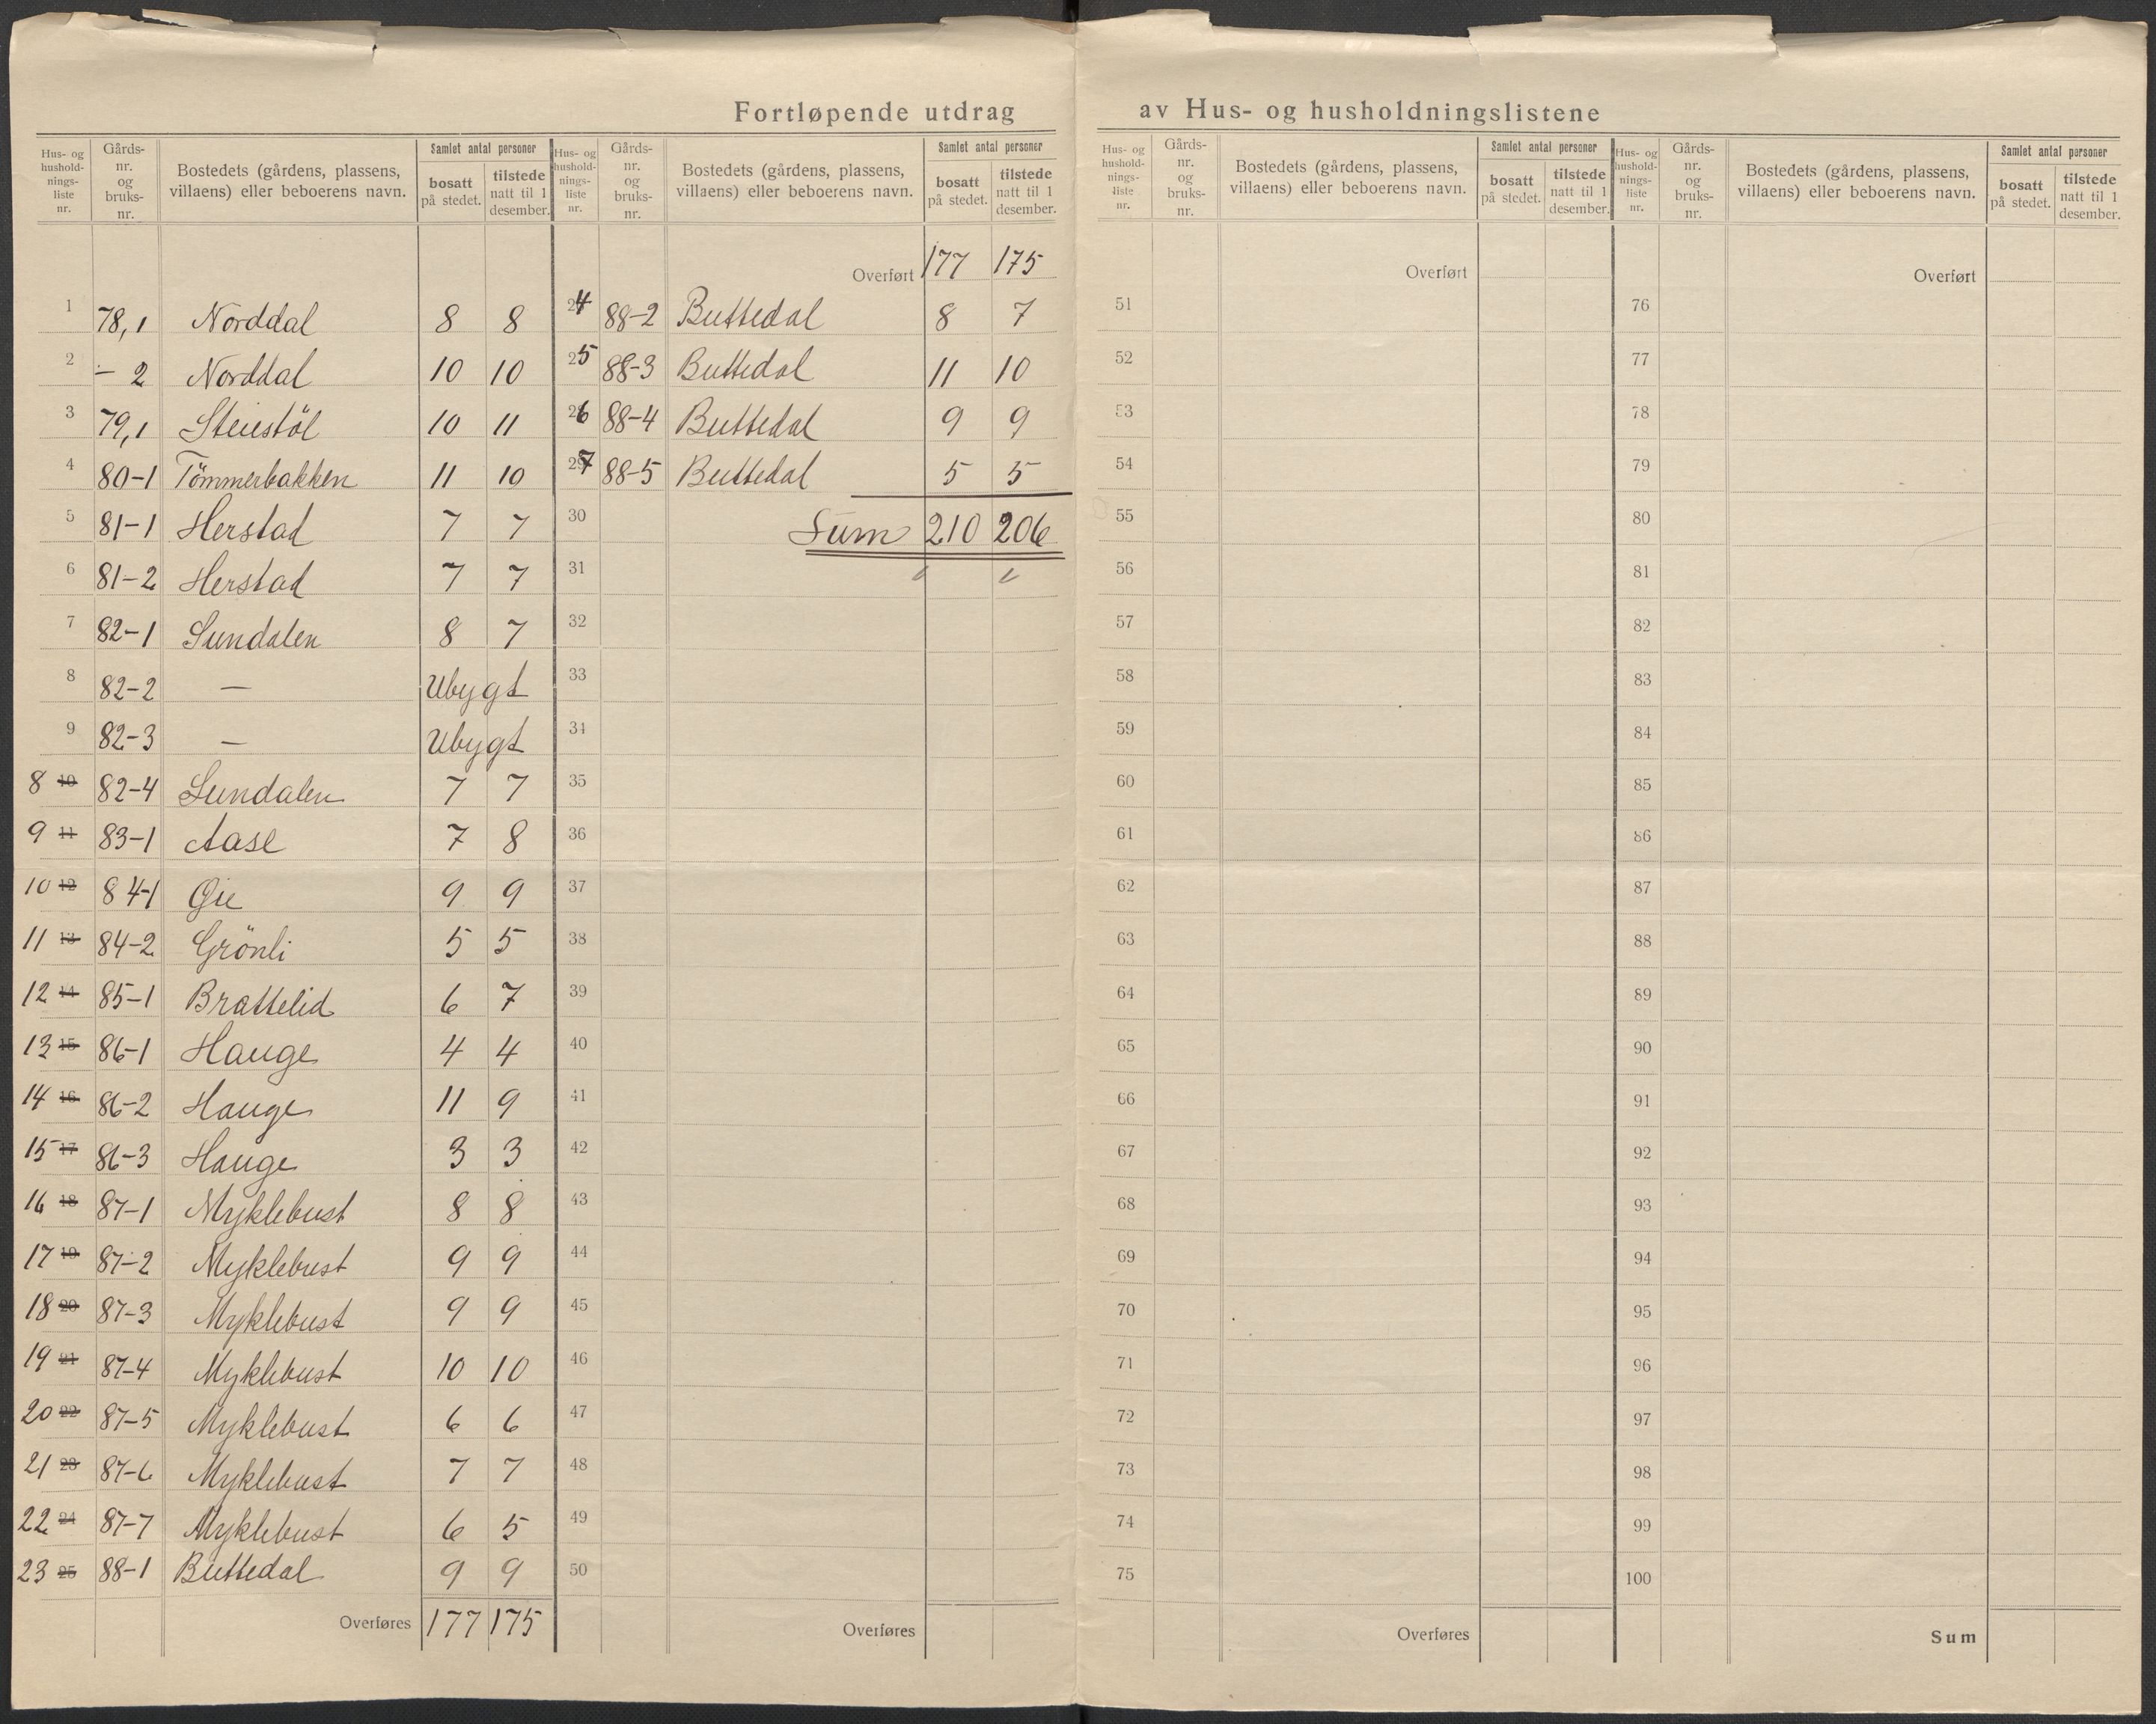 Fortløpende utdrag av Hus- og husholdningslistene
Hus- og hushold- nings- liste nr. Gårds- nr. og bruks- nr. Bostedets (gårdens, plassens, villaens) eller beboerens navn. Samlet antal personer bosatt på stedet. tilstede natt til 1 desember.
1 78,1 Norddal 8 8
2 - 2 Norddal 10 10
3 79,1 Steistöl 10 11
4 80-1 Tömmerbakken 11 10
5 81-1 Herstad 7 7
6 81-2 Herstad 7 7
7 82-1 Sundalen 8 7
8 82-2 — Ubygt
9 82-3 — Ubygt
8 10 82-4 Sundalen 7 7
9 11 83-1 Aase 7 8
10 12 84-1 Øie 9 9
11 13 84-2 Grönli 5 5
12 14 85-1 Brattelid 6 7
13 15 86-1 Hauge 4 4
14 16 86-2 Hauge 11 9
15 17 86-3 Hauge 3 3
16 18 87-1 Myklebust 8 8
17 19 87-2 Myklebust 9 9
18 20 87-3 Myklebust 9 9
19 21 87-4 Myklebust 10 10
20 22 87-5 Myklebust 6 6
21 23 87-6 Myklebust 7 7
22 24 87-7 Myklebust 6 5
23 25 88-1 Buttedal 9 9
Overføres 177 175
Hus- og hushold- nings- liste nr. Gårds- nr. og bruks- nr. Bostedets (gårdens, plassens, villaens) eller beboerens navn. Samlet antal personer bosatt på stedet. tilstede natt til 1 desember.
Overført 177 175
24 88-2 Buttedal 8 7
25 88-3 Buttedal 11 10
26 88-4 Buttedal 9 9
27 88-5 Buttedal 5 5
30 Sum 210 206
31
32
33
34
35
36
37
38
39
40
41
42
43
44
45
46
47
48
49
50
Overføres
Hus- og hushold- nings- liste nr. Gårds- nr. og bruks- nr. Bostedets (gårdens, plassens, villaens) eller beboerens navn. Samlet antal personer bosatt på stedet. tilstede natt til 1 desember.
Overført
51
52
53
54
55
56
57
58
59
60
61
62
63
64
65
66
67
68
69
70
71
72
73
74
75
Overføres
Hus- og hushold- nings- liste nr. Gårds- nr. og bruks- nr. Bostedets (gårdens, plassens, villaens) eller beboerens navn. Samlet antal personer bosatt på stedet. tilstede natt til 1 desember.
Overført
76
77
78
79
80
81
82
83
84
85
86
87
88
89
90
91
92
93
94
95
96
97
98
99
100
Sum